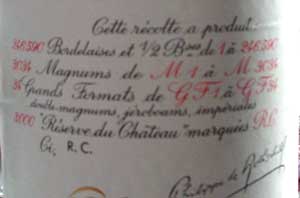 Cette récolte a produit
246.590 Bordelaises et 1/2 Bses de 1 à 246.590
3034 Magnums de M 1 à M 3034
54 Grands Formats de G F 1 à G F 54
double-magnums, jeroboams, impériales
3000 "Réserve du Château" marquées R.C.
Ci, R. C.
Philippe de Rothschild